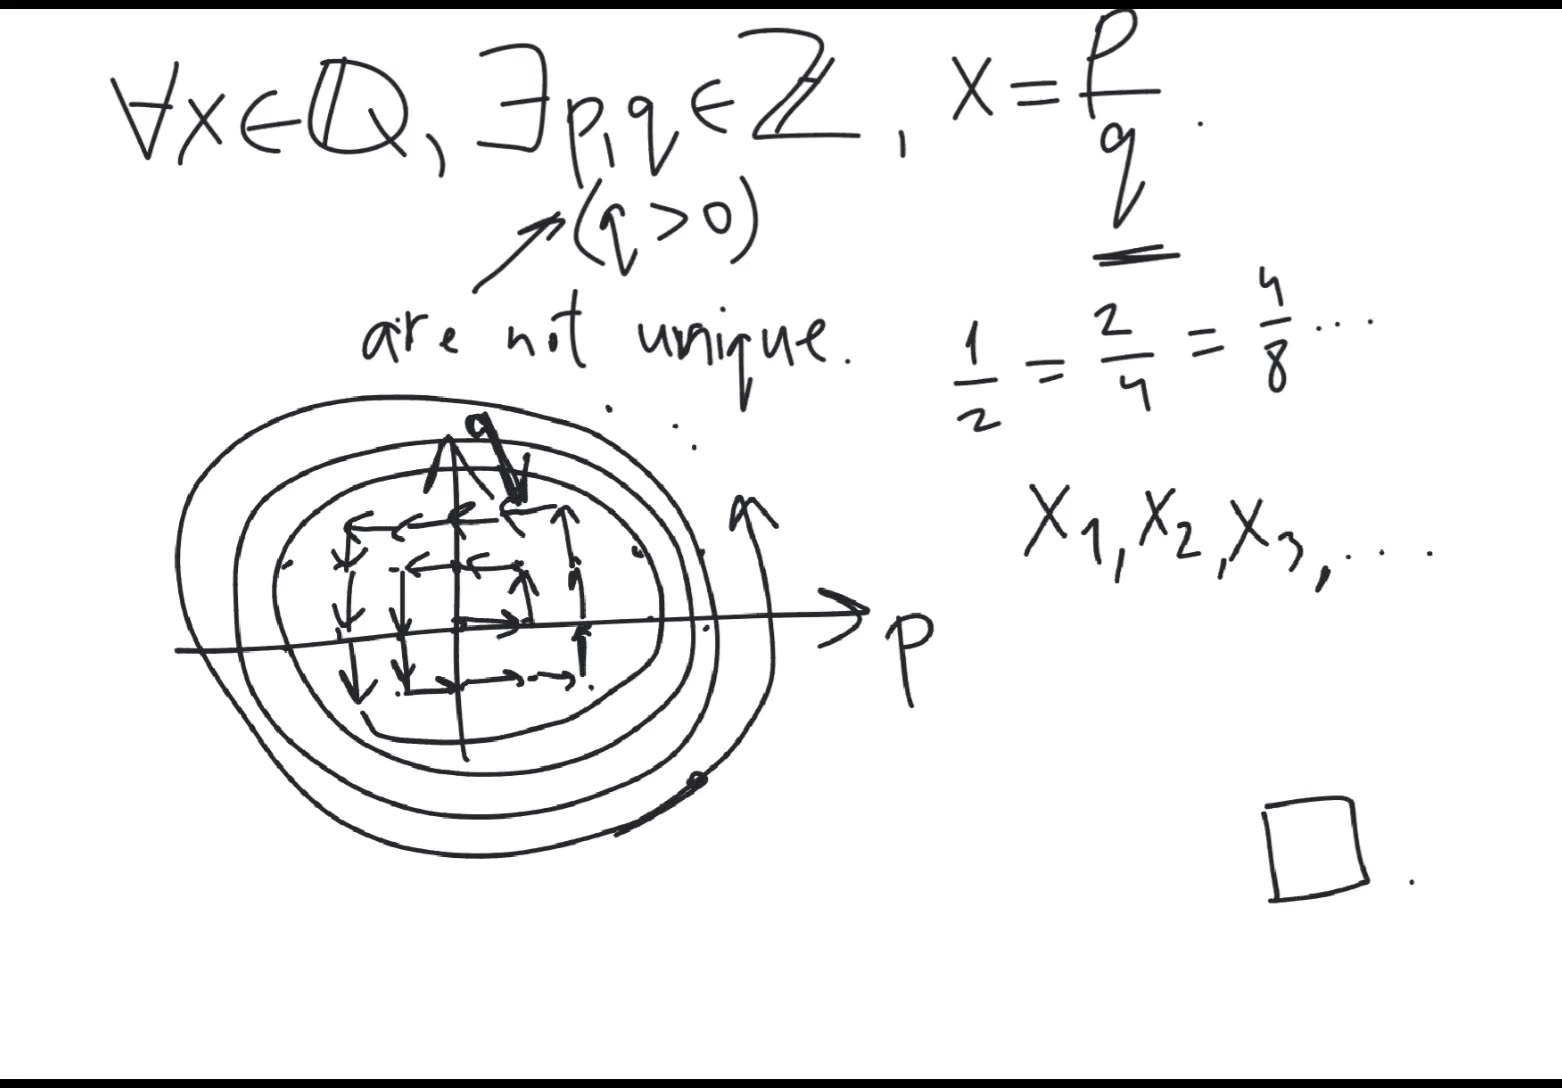 ∀x∈ℚ, ∃p,q∈ℤ, x = p/q.
(q>0)
are not unique.
1/2 = 2/4 = 4/8 ....
q
x₁, x₂, x₃, ...
p
□.